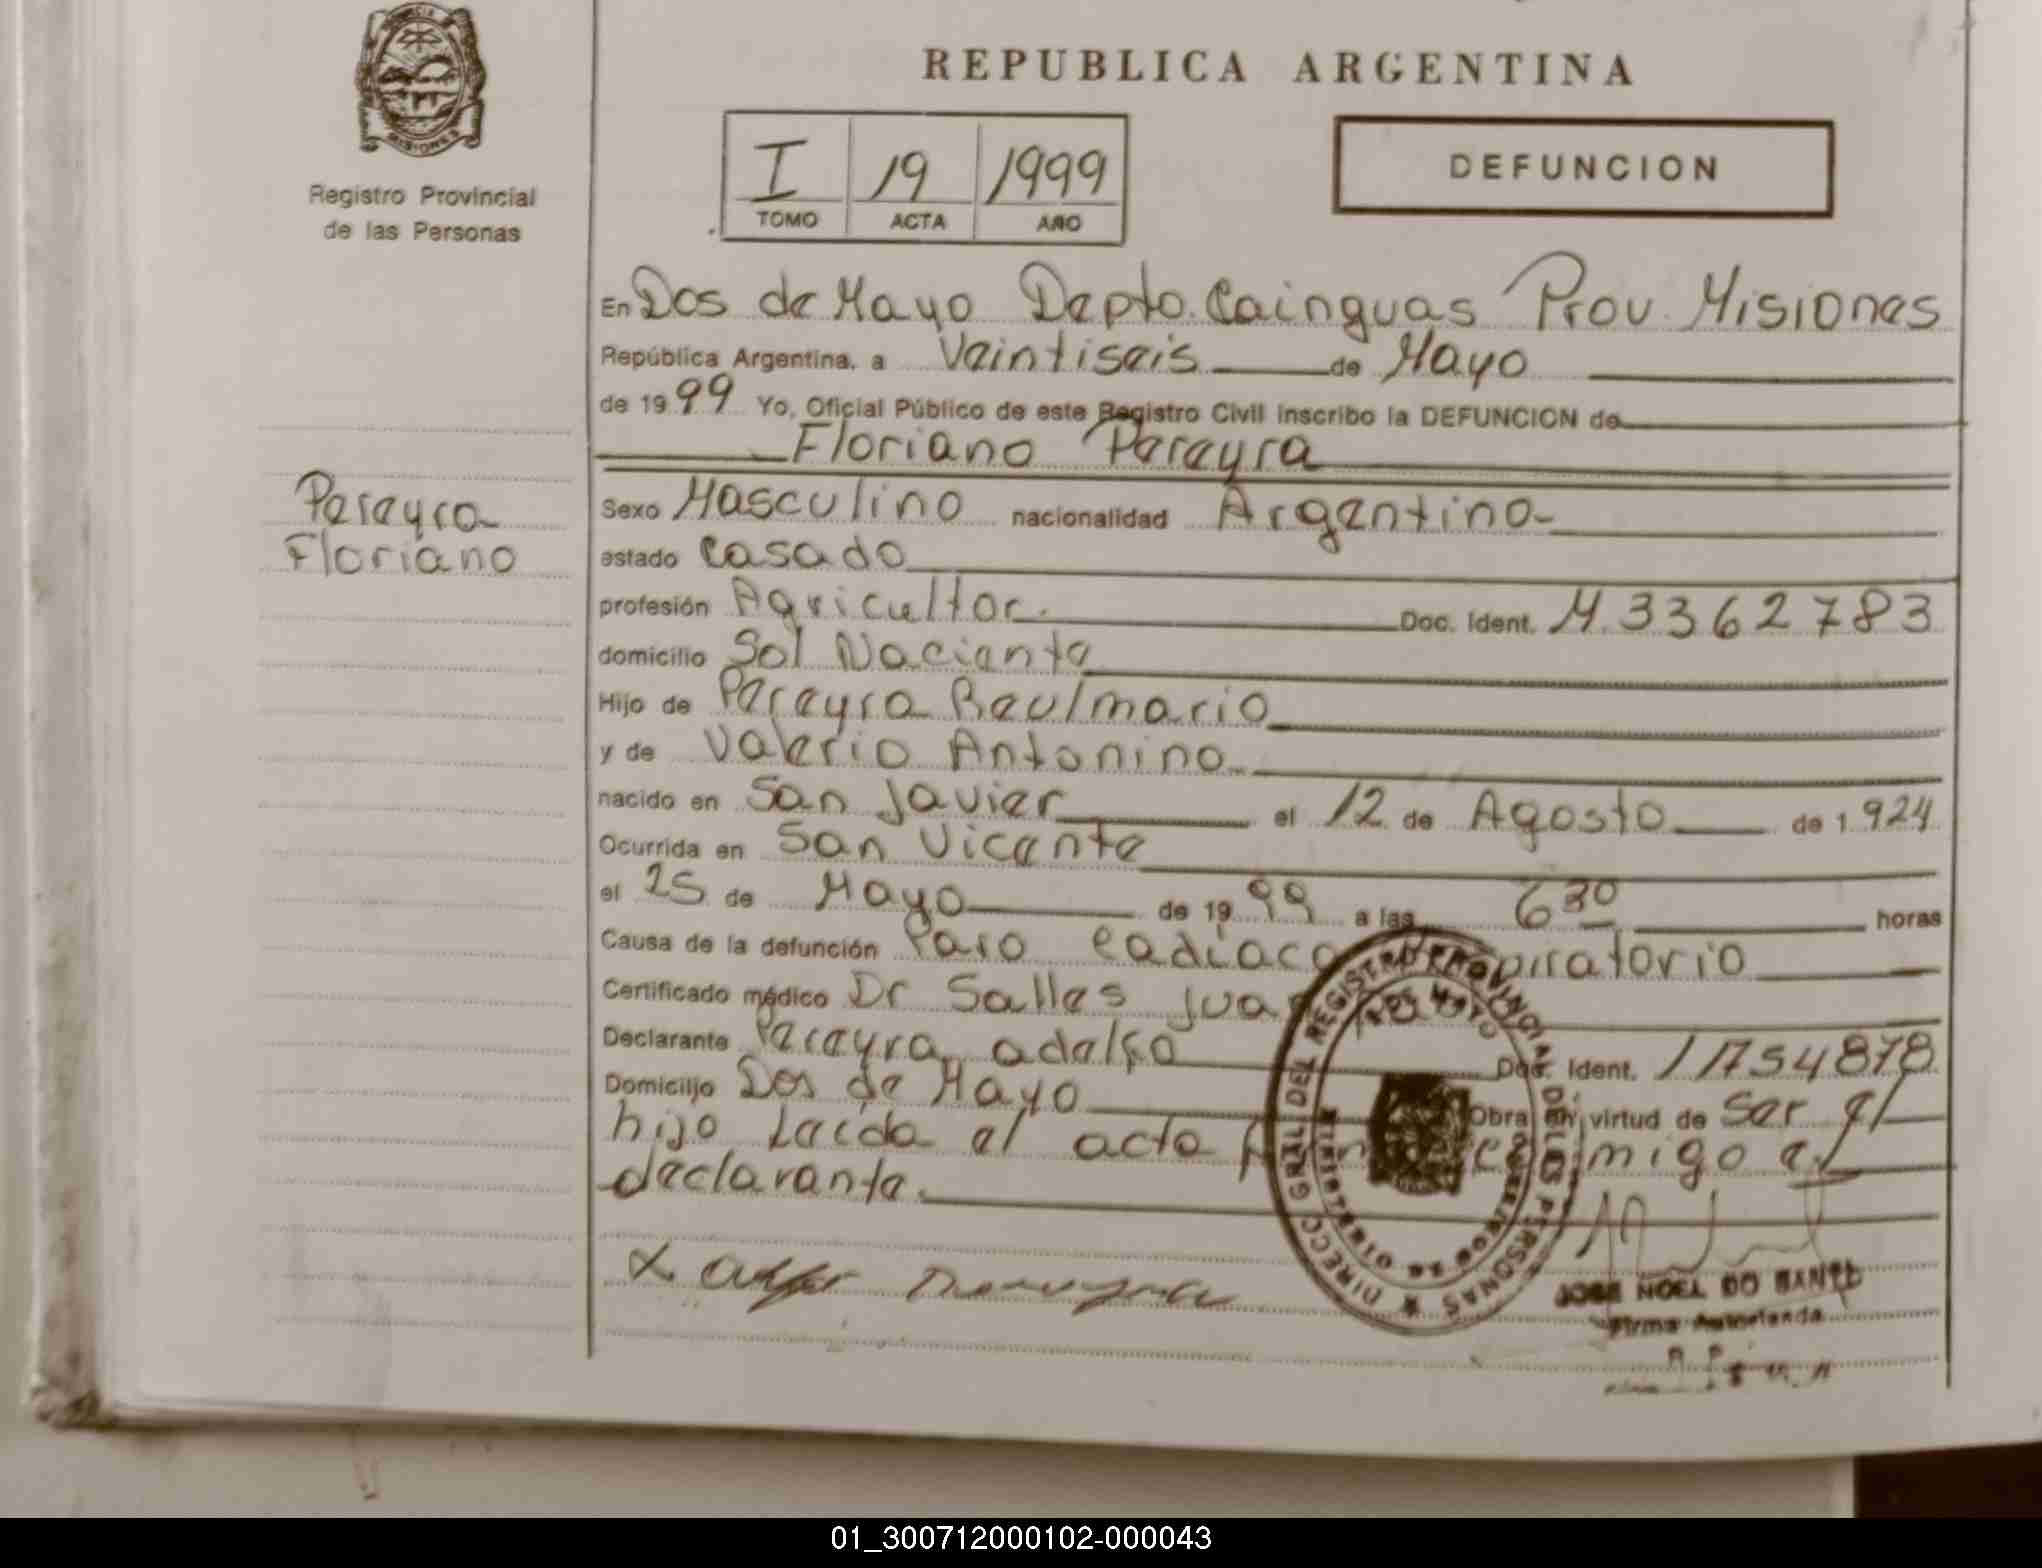 REPUBLICA ARGENTINA
PROVINCIA DE MISIONES
Registro Provincial
de las Personas
I 19 1999
TOMO ACTA AÑO
DEFUNCION
En Dos de Mayo Depto. Cainguas Prov. Misiones
República Argentina, a Veintiseis de Mayo
de 19 99 Yo, Oficial Público de este Registro Civil inscribo la DEFUNCION de
Floriano Pereyra
Pereyra
Floriano
Sexo Masculino nacionalidad Argentino
estado Casado
profesión Agricultor. Doc. Ident. M. 3362783
domicilio Sol Naciente
Hijo de Pereyra Raulmario
y de Valerio Antonino
nacido en San Javier el 12 de Agosto de 1 924
Ocurrida en San Vicente
el 25 de Mayo de 19 99 a las 6 30 horas
Causa de la defunción Paro Cadíaco
Certificado médico Dr Salles
Declarante Pereyra adelfo
Doc. Ident.
Domicilio Dos de Mayo Obra en virtud de ser el
hijo Leída el acta migo el
declarante.
DIRECC GRAL DEL REGISTRO PROVINCIAL DE LAS PERSONAS
DOS DE MAYO
JOSE NOEL DO
Firma Autorizada
01_300712000102-000043